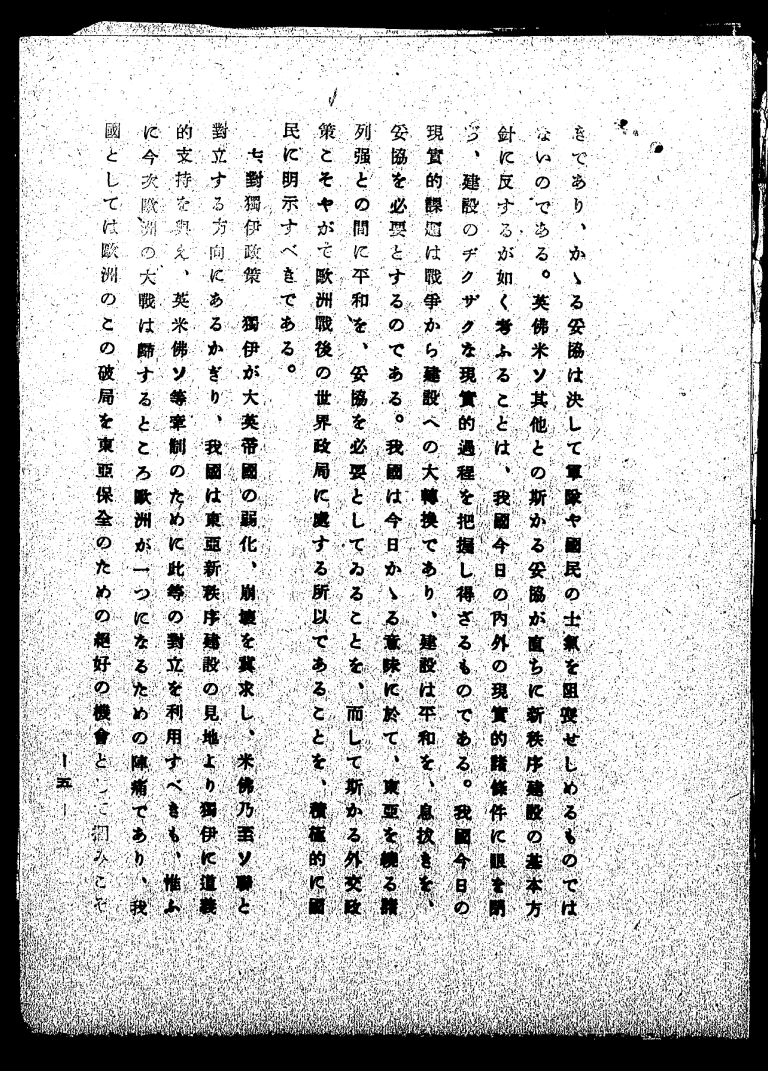 きであり、かゝる妥協は決して軍隊や國民の士氣を阻喪せしめるものでは
ないのである。英佛米ソ其他との斯かる妥協が直ちに新秩序建設の基本方
針に反するが如く考ふることは、我國今日の內外の現實的諸條件に眼を閉
ぢ、建設のヂクザクな現實的過程を把握し得ざるものである。我國今日の
現實的課題は戰爭から建設への大轉換であり、建設は平和を、息拔きを、
妥協を必要とするのである。我國は今日かゝる意味に於て、東亞を繞る諸
列强との間に平和を、妥協を必要としてゐることを、而して斯かる外交政
策こそやがて歐洲戰後の世界政局に處する所以であることを、積極的に國
民に明示すべきである。
七對獨伊政策　獨伊が大英帝國の弱化、崩壞を冀求し、米佛乃至ソ聯と
對立する方向にあるかぎり、我國は東亞新秩序建設の見地より獨伊に道義
的支持を與え、英米佛ソ等牽制のために此等の對立を利用すべきも、惟ふ
に今次歐洲の大戰は歸するところ歐洲が一つになるための陣痛であり、我
國としては歐洲のこの破局を東亞保全のための絕好の機會として摑みこそ
— 五 —